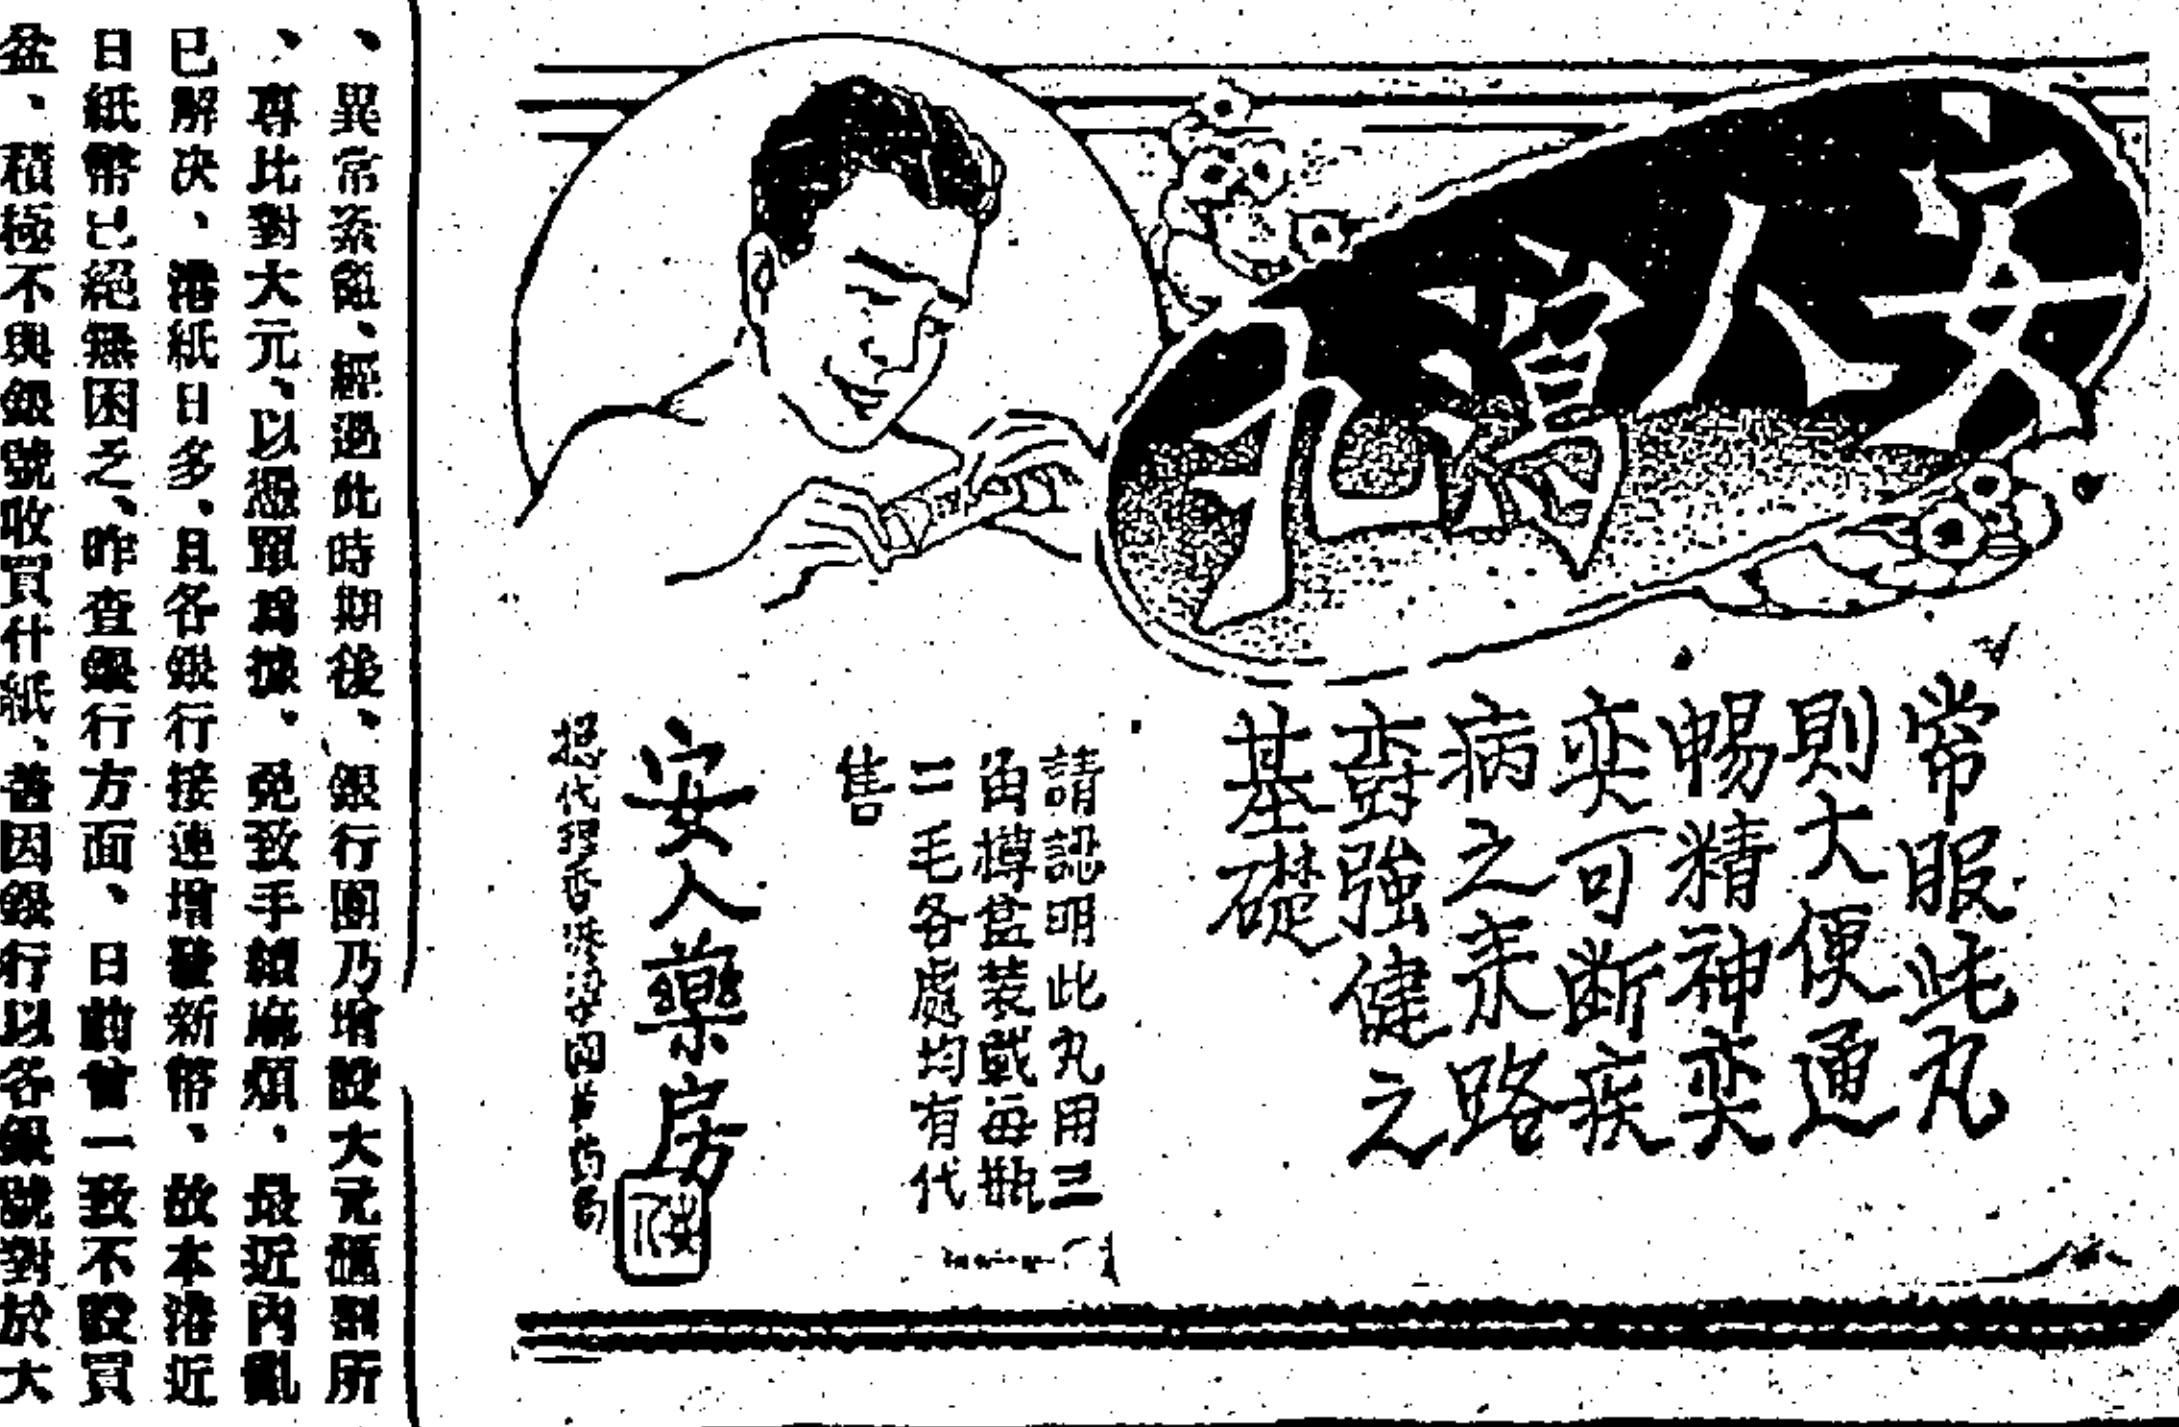 安人瀉丸
常服此丸
則大便通
暢精神奕
奕可断疾
病之来路
強健之
基礎
請認明此丸用三
角樽盒裝載每瓶
二毛各處均有代
售
安人藥房
總代理香港
、異常紊亂、經過此時期後、銀行團乃增設大元滙劃所
、專比對大元、以憑單為據、免致手續麻煩、最近內亂
已解决、港紙日多、且各銀行接連增發新幣、故本港近
日紙幣已絕無困乏、昨查銀行方面、日前曾一致不設買
盆、積極不與銀號收買什紙、蓋因銀行以各銀號對於大